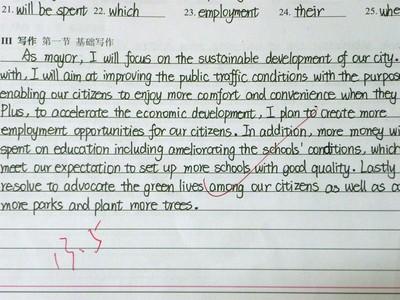 21. will be spent 22. which 23. employment 24. their 25. whe
III 写作 第一节 基础写作
As mayor, I will focus on the sustainable development of our city.
with, I will aim at improving the public traffic conditions with the purpos
enabling our citizens to enjoy more comfort and convenience when they
Plus, to accelerate the economic development, I plan to create more
employment opportunities for our citizens. In addition, more money wi
spent on education including ameliorating the schools' conditions, which
meet our expectation to set up more schools with good quality. Lastly
resolve to advocate the green lives among our citizens as well as c
more parks and plant more trees.
13.5